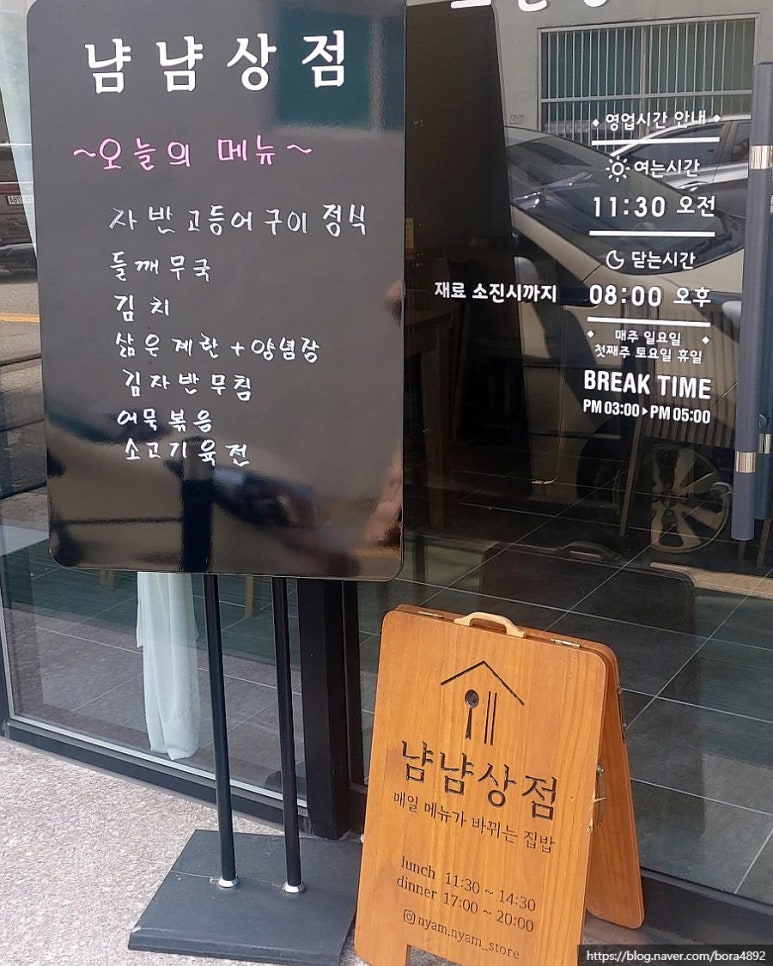 냠냠상점
~오늘의 메뉴~
자반고등어구이 정식
들깨무국
김치
삶은계란+양념장
김자반무침
어묵볶음
소고기육전
영업시간 안내
여는시간
11:30 오전
닫는시간
재료 소진시까지 08:00 오후
매주 일요일
첫째주 토요일 휴일
BREAK TIME
PM 03:00▶PM 05:00
냠냠상점
매일 메뉴가 바뀌는 집밥
lunch 11:30 ~ 14:30
dinner 17:00 ~ 20:00
nyam.nyam_store
https://blog.naver.com/bora4892